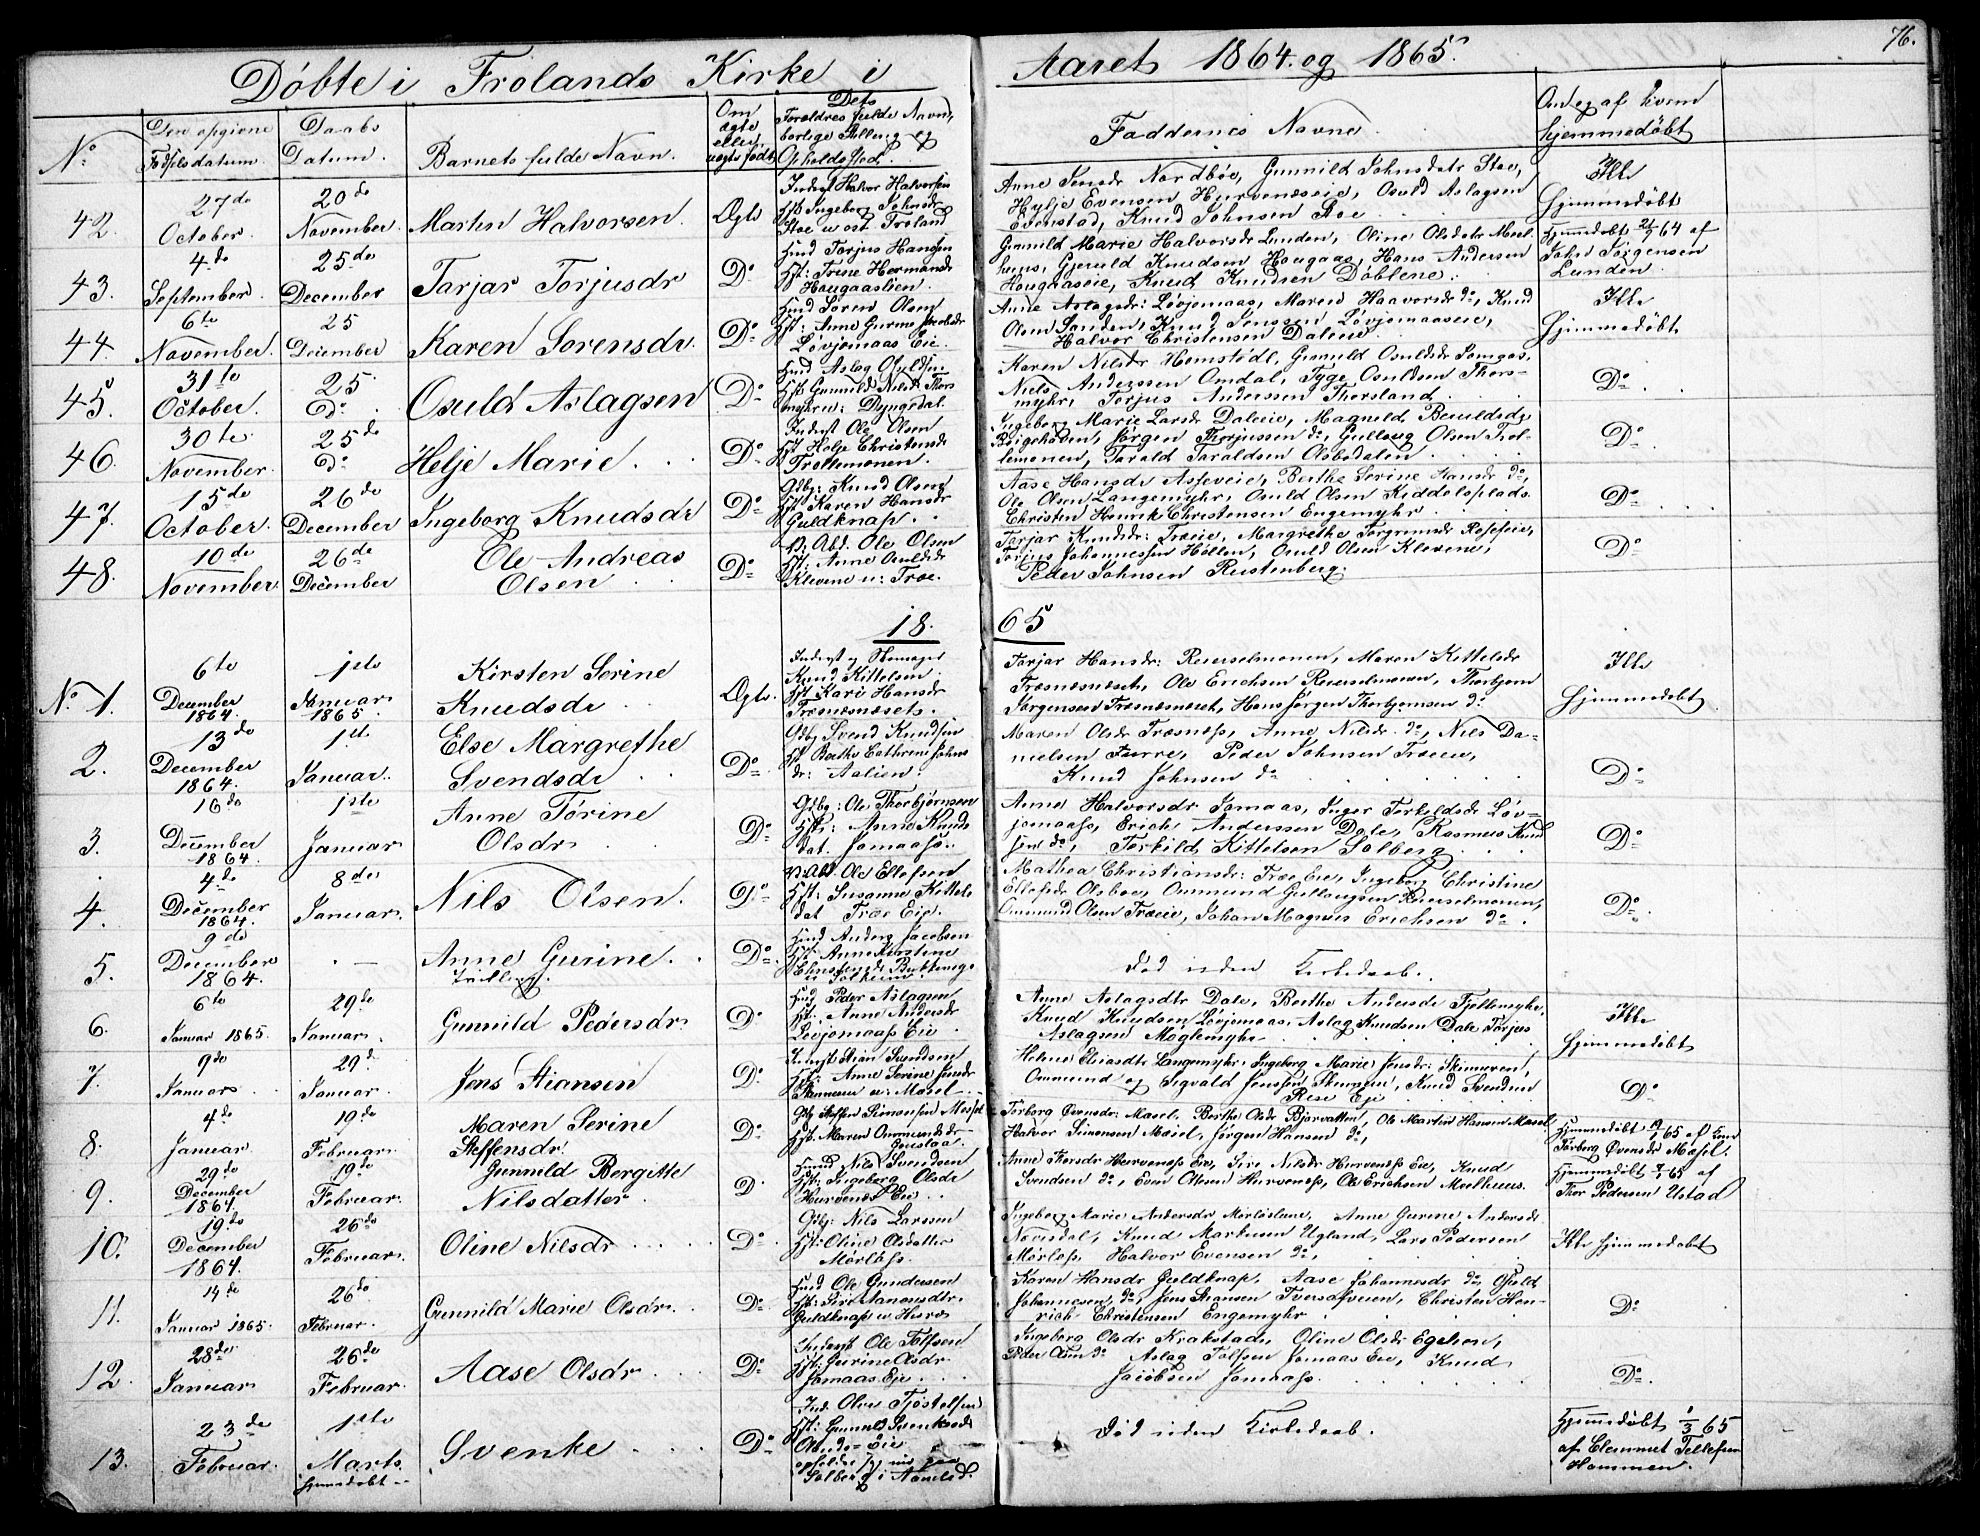 76.
Döbte i Frolands Kirke i Aaret 1864. og 1865.
No
Den opgivne Födselsdatum.
Daabs Datum.
Barnets fulde Navn.
Om ægte eller uægte födt
Dets Forældres fulde Navn, borlige Stilling og Opholdssted.
Faddernes Navne.
Om og af hvem hjemmedöbt
42.
27de October.
20de November
Martin Halvorsen.
Ægte
Inderst Halvor Halvorsen
Hst. Ingeborg Johnsdr
Stoe u ost. Froland
Anne Jensdr Nordböe, Gunnild Johnsdatr Stoe,
Hylje Evensen Hurvenæseie, Osuld Aslagsen
Evenstad, Knud Johnsen Stoe
Ikke
Hjemmedöbt
43.
4de September.
25de December
Tarjar Torjusdr
Do
Huusd Torjus Hansen
Hst: Trine Hermansdr
Hougaaslien.
Gunnild Marie Halvorsdr Lunden, Oline Olsdatr Meel-
huus, Gjeruld Knudsen Hougaas, Hans Andersen
Hougaaseie, Knud Knudsen Döblene.
Hjemmedöbt 64 af
John Jörgensen
Lunden.
44.
6te November.
25 December
Karen Sorensdr.
Do
Huusd Sören Olsen
Hst: Anne Gurine Jacobsdr
Lövjomaas Eie.
Anne Aslagsdr: Lövjomaas, Maren Haavorsdr do, Knud
Olsen Sanden, Knud Jensen Lövjomaaseie,
Halvor Christensen Dalene.
Ikke
Hjemmedöbt
45.
31te October.
25 Do
Osuld Aslagsen
Do
Huusd Aslag Osuldsen
Hst Gunnild Nilsdr Thors-
mykren: Dyngedal.
Karen Nilsdr Hemstedl, Gunuld Osuldsdr
Niels Anderssen Omdal, Tyge Osuldsen Thors-
mykr, Torjus Anderssen Thorsland.
Do
46.
30te November.
25de Do
Helje Marie.
Do
Inderst Ole Olsen
Hst Helje Christensdr
Trollemonen.
Ingeborg Marie Larsdr Daleie, Magnild Beruldsdr
Bögehöden, Jörgen Thorjussen do, Gullaug Olsen Trol-
lemonen, Tarald Taraldsen Olsbodalen
Do
47.
15de October.
26de December
Ingeborg Knudsdr
Do
Gdbr. Knud Olsen
Hst Karen Hansdr
Guldknap.
Aase Hansdr Asseveie, Berthe Serine Hansdr do,
Ole Olsen Langemykr, Osuld Olsen Kiddelsplads
Christen Henrik Christensen Engemykr
Do
48.
10de November.
26de December
Ole Andreas
Olsen
Do
Abd. Ole Olsen
Hst: Anne Osuldsdr
Klevene u: Træe.
Tarjar Knudsdr: Træeie, Margrethe Torgrimsdr
Torjus Johannessen Hillen, Osuld Olsen Klevene,
Peder Johnsen Rustenberg.
Do
18 65
No 1.
6te December 1864.
1ste Januar 1865.
Kirsten Serine
Knudsdr
Ægte.
Inderst og Skomager
Knud Kittelsen
Hst Kari Hansdr
Træsnæsnæset.
Tarjar Hansdr: Reierselmonen, Maren Kittelsdr
Træsnæsnæset, Ole Erichsen Reierselmonen, Thorbjorn
Jörgensen Træsnæsnæset, Hans Jörgen Thorbjornsen do
Ikke
Hjemmedöbt
2.
13de December 1864.
1ste Januar.
Else Margrethe
Svendsdr
Do
Gdbr Svend Knudsen
Hst Berthe Cathrine Johns
dr: Aalien.
Maren Olsdr Træsnes, Anne Nilsdr do, Nils Da-
nielsen Furre, Peder Johnsen Træeie,
Knud Johnsen do
Do
3.
16de December 1864.
1ste Januar
Anne Törine
Olsdr
Do
Gdbr: Ole Thorbjörnsen
Hst: Anne Knuds
dat. Jomaas.
Anne Halvorsdr Jomaas, Inger Terkeldsdr Löv-
jomaas, Erich Anderssen Dale, Rasmus Knud
sen do, Terkild Kittelsen Solberg
Do
4.
4de December 1864.
8de Januar.
Nils Olsen.
Do
Abd Ole Ellefsen
Hst: Susanne Kittels
dat Træe Eie.
Mathea Christiansdr: Træe Eie, Ingeborg Christine
Ellefsdr Olsboe, Ommund Gullaugsen Reierselmonen,
Ommund Olsen Træeie, Johan Magnus Erichsen do
Do
5.
9de December 1864.
. —
Anne Gurine.
trilling.
Do
Huusd Anders Jacobsen
Hst: Anne Kirstine
Christensdr
Död uden Kirkedaab.
6.
6te Januar 1865.
29de Januar.
Gunnild Pedersdr
Do
Huusd Peder Aslagsen
Hst: Anne Andersdr
Lövjomaas Eie
Anne Aslagsdtr Dale, Berthe Andersdr Fjellemykr,
Knud Knudsen Lövjomaas, Aslag Knudsen Dale Torjus
Aslagsen Möglemykr
Ikke
Hjemmedöbt
7.
9de Januar
29de Januar.
Jens Stiansen
Do
Inderst Stian Svendsen
Hst: Anne Serine Jensdr
u. Mæsel
Helene Eliasdtr Langemykr, Ingeborg Marie Jensdr:
Ommund og Sigvald Jenssen, Knud Svendsen
Rise Eje
Do
8.
4de Januar
19de Februar.
Maren Serine
Steffensdr
Do
Gdb Steffen Simonsen Mæsel
Hst. Maren Ommundsdr
Torborg Övensdr Mæsel, Berthe Olsdr Bjorvatten, Ole Martin Hansen Mæsel
Halvor Simonsen Mæsel, Jörgen Hansen do,
Hjemmedöbt 65 af
Torborg Övensdr Mæsel.
9.
29de December 1864.
19de Februar.
Gunnild Bergitte
Nilsdatter
D.
Huusd Nils Svendsen
Hst. Ingeborg Olsdr
Hurvenæs Eie
Anne Thorsdr Hurvenæs Eie, Sire Nilsdr Hurvenæs Eie, Knud
Svendsen do, Even Olsen Hurvenæs, Ole Erichsen Meelhuus.
Hjemmedöbt 65 af
Thor Pedersen Ustad
10.
19de December 1864.
26de Februar.
Oline Nilsdr
Do
Gdbr: Nils Larssen
Hst: Oline Olsdatter
Mörlös.
Ingeborg Marie Andersdr Anne Gurine Andersdr
Næversdal, Knud Markusen Ugland, Lars Pedersen
Mörlös, Halvor Evensen do,
Ikke hjemmedöbt
11.
14de Januar 1865.
26de Februar.
Gunnild Marie Olsdr.
Do
Huusd Ole Gundersen
Hst: Sire Aanonsdtr.
Guldknap u
Karen Hansdr Guldknap, Aase Johannesdr do, Osuld
Johannesen do, Jens Stiansen Christen Hen-
rich Christensen Engemykr
Do
12.
28de Januar
26de Februar.
Aase Olsdr
Do
Inderst Ole Tolfsen
Hst: Gurine Olsdr
Jomaas Eje
Ingeborg Olsdr Krakstad, Oline Olsdr Egehen,
Peder Olsen do Aslag Tolfsen Jomaas Eie, Knud
Jacobsen Jomaas.
Do
13.
23de Februar.
1ste Marts
hjemdöbt
Svenke
Do
Ind. Olve Tjöstelsen
Hst: Gunnild Svenksdr
Solberg i Aamlid.
Död uden Kirkedaab.
Hjemdöbt 1/3 65
af Clemmet Tellefsen
Hommen.